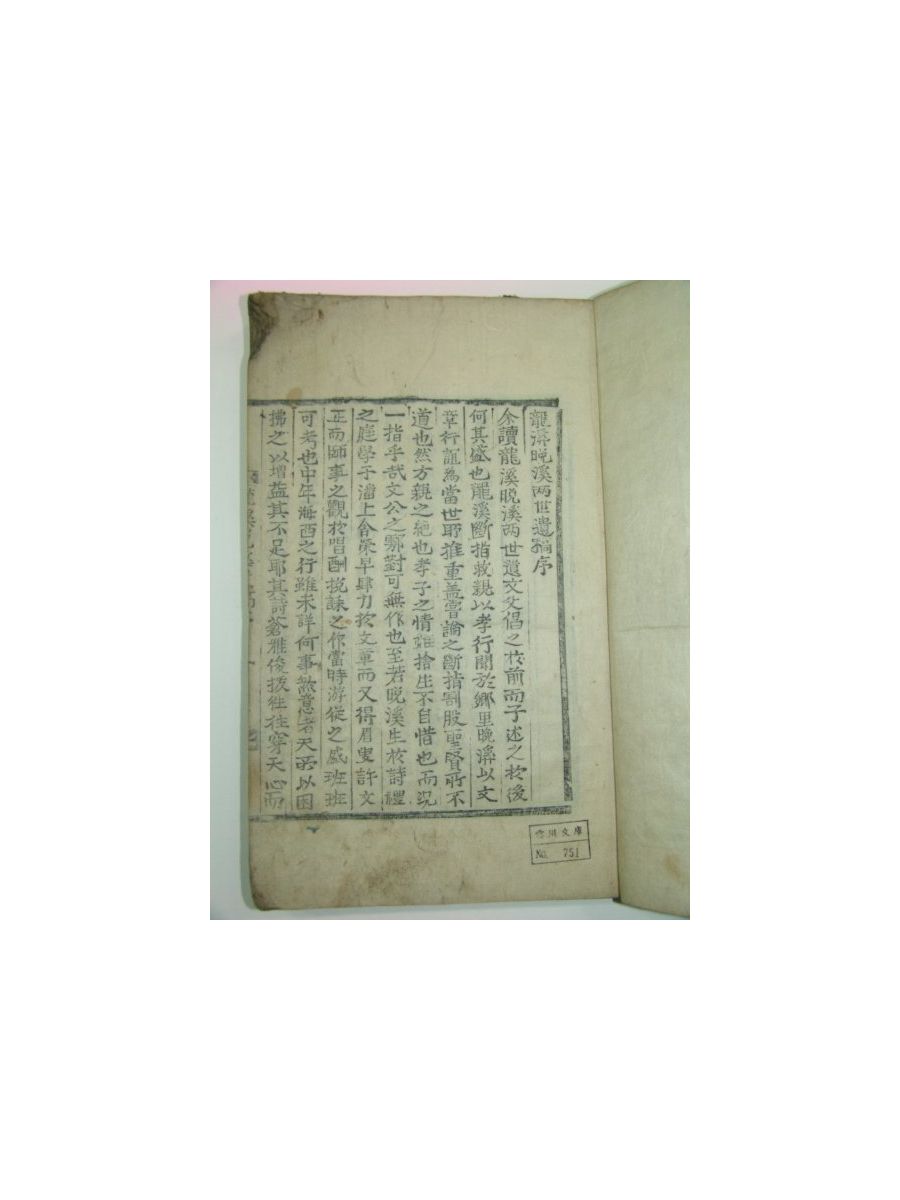 龍溪晩溪两世遺稿序
余讀龍溪晩溪两世遺文父倡之於前而子述之於後
何其盛也龍溪斷指救親以孝行聞於鄉里晩溪以文
章行誼爲當世所推重盖嘗論之斷指割股聖賢所不
道也然方親之絶也孝子之情雖捨生不自惜也而況
一指乎哉文公之鄠對可無作也至若晩溪生於詩禮
之庭學于潘上舍榮早肆力於文章而又得眉叟許文
正而師事之觀於唱酬挽誄之作當時游從之盛班班
可考也中年海西之行雖未詳何事然意者天所以困
拂之以增益其不足耶其詩蒼雅俊拔往往穿天心而
文庫
No. 751